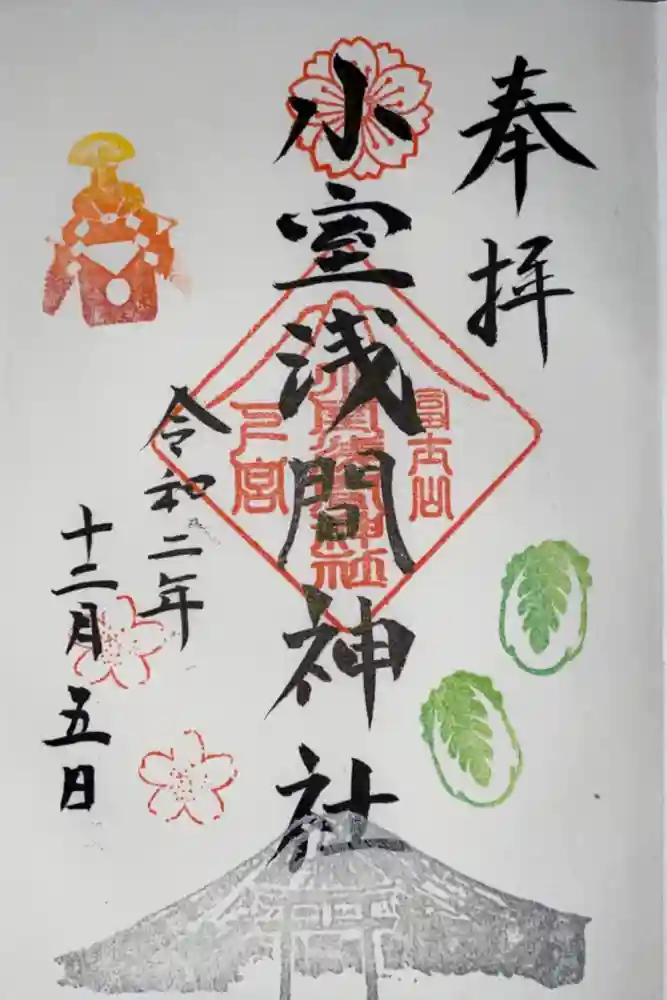 奉拝
小室浅間神社
令和二年
十二月五日
冨士山
下宮
小室浅間神社